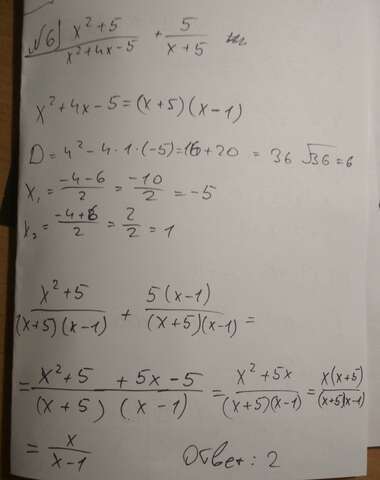 №6) (x²+5)/(x²+4x-5) + 5/(x+5)
x²+4x-5=(x+5)(x-1)
D=4²-4·1·(-5)=16+20 = 36 √36=6
x₁=(-4-6)/2=(-10)/2=-5
x₂=(-4+6)/2=2/2=1
(x²+5)/((x+5)(x-1)) + (5(x-1))/((x+5)(x-1)) =
=(x²+5 +5x-5)/((x+5)(x-1))=(x²+5x)/((x+5)(x-1))=(x(x+5))/((x+5)(x-1))
= x/(x-1) Ответ: 2